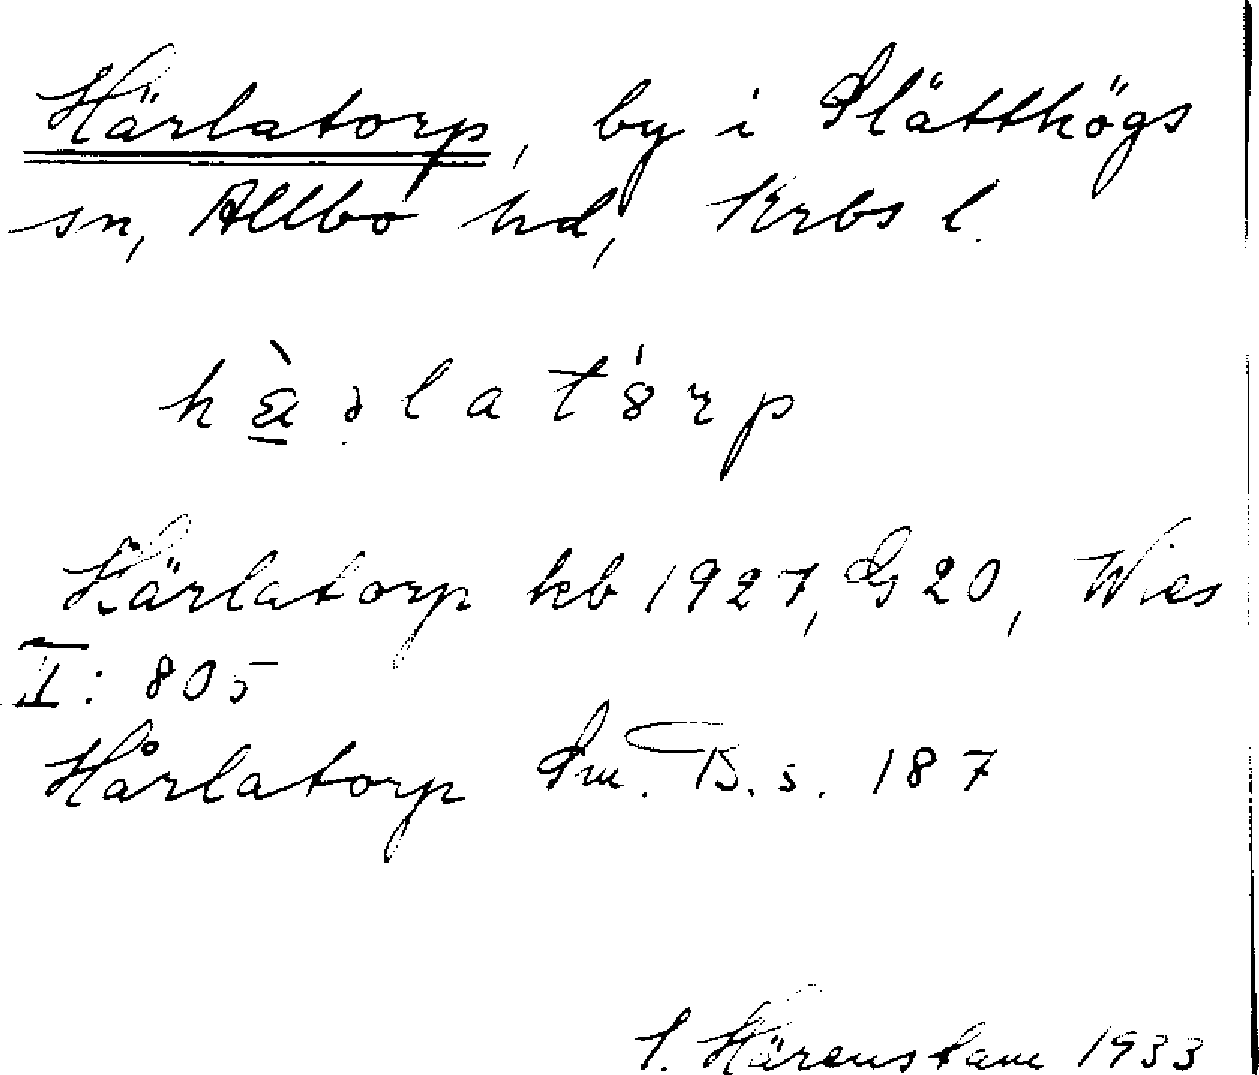 Härlatorp, by i Slätthögs
sn, Allbo hd, Krbs l.
Härlatorp kb 1927, GS 20, Wies
II: 805
Hårlatorp Sm. B. s. 187
Härenstam 1933